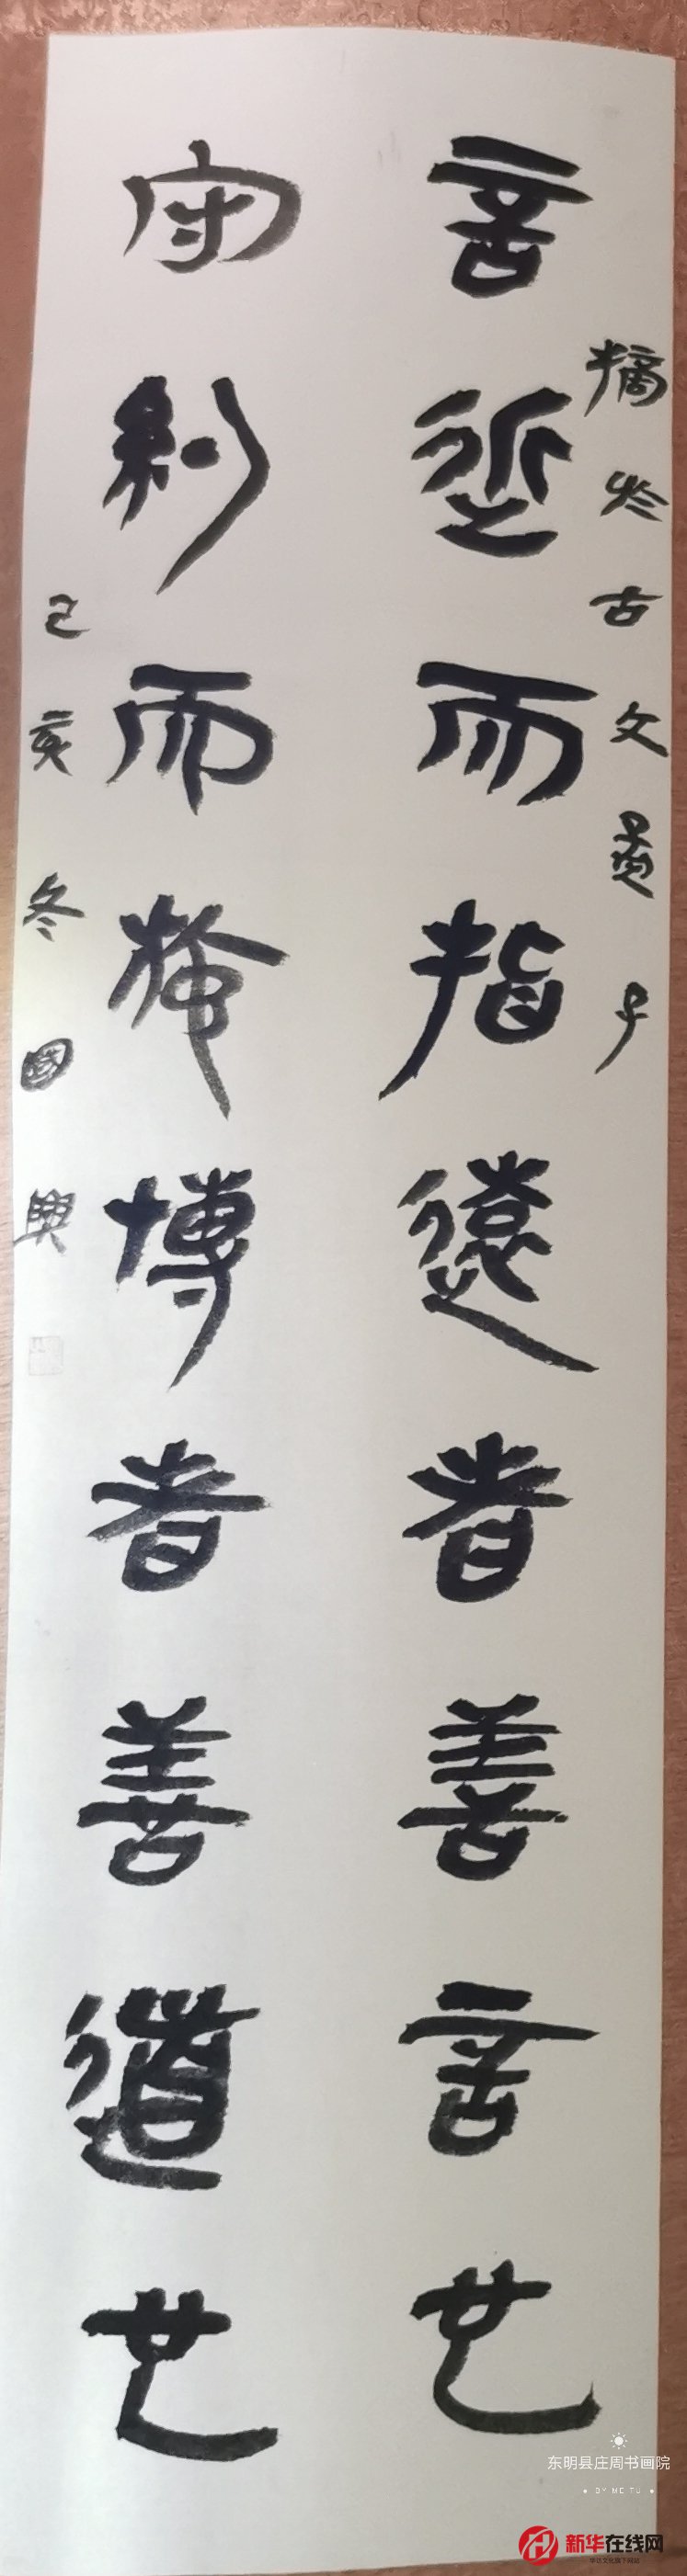 摘於古文孟子
言近而指遠者善言也
守約而施博者善道也
己亥冬國興
东明县庄周书画院
BY ME TU
新华在线网